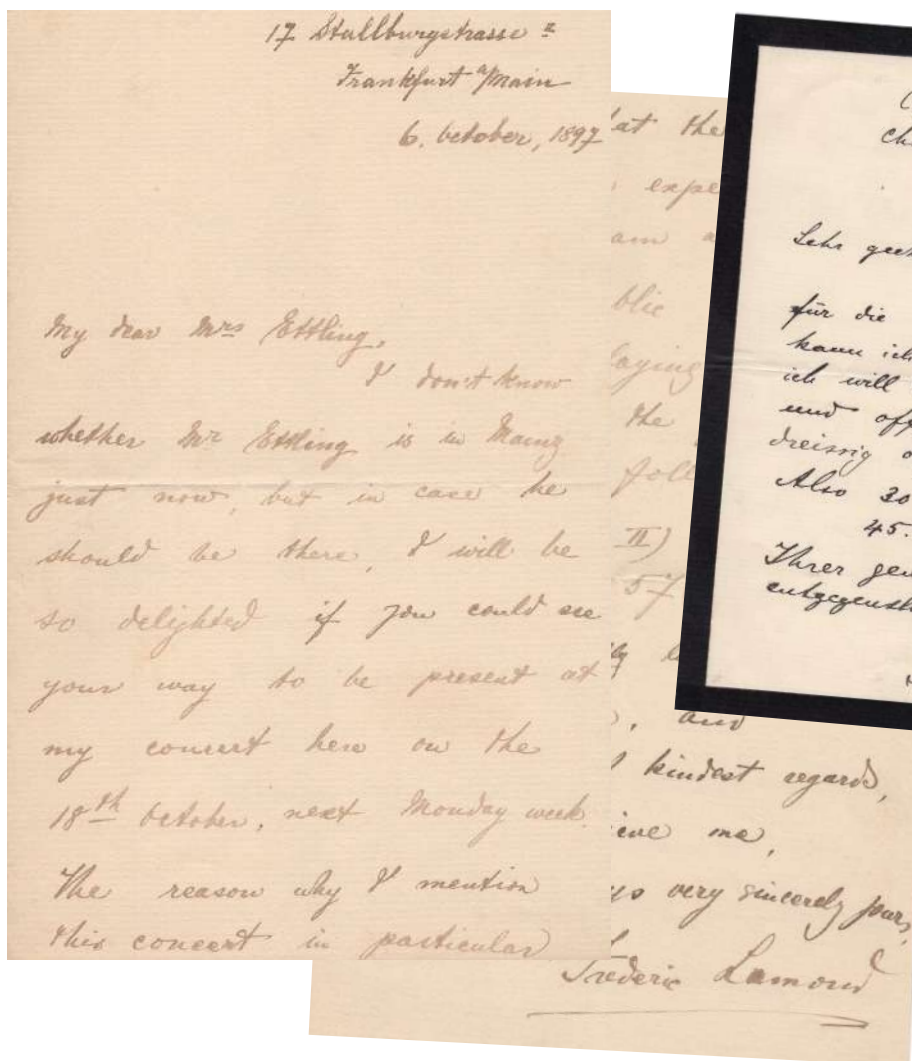 17 Stallburgstrasse II
Frankfurt a/Main
6. October, 1897
My dear Mrs Ettling,
I don't know
whether Mr Ettling is in Mainz
just now, but in case he
should be there, I will be
so delighted if you could see
your way to be present at
my concert here on the
18th October, next Monday week.
The reason why I mention
this concert in particular
at the
expe
am a
blic
laying
the
foll
II)
57
, and
kindest regards,
ieve me,
ys very sincerely yours,
Frederic Lamond
Ch
Sehr geeh
für die
kann ich
ich will
und off
dreissig o
Also 30
45.
Ihrer gen
entgegenst